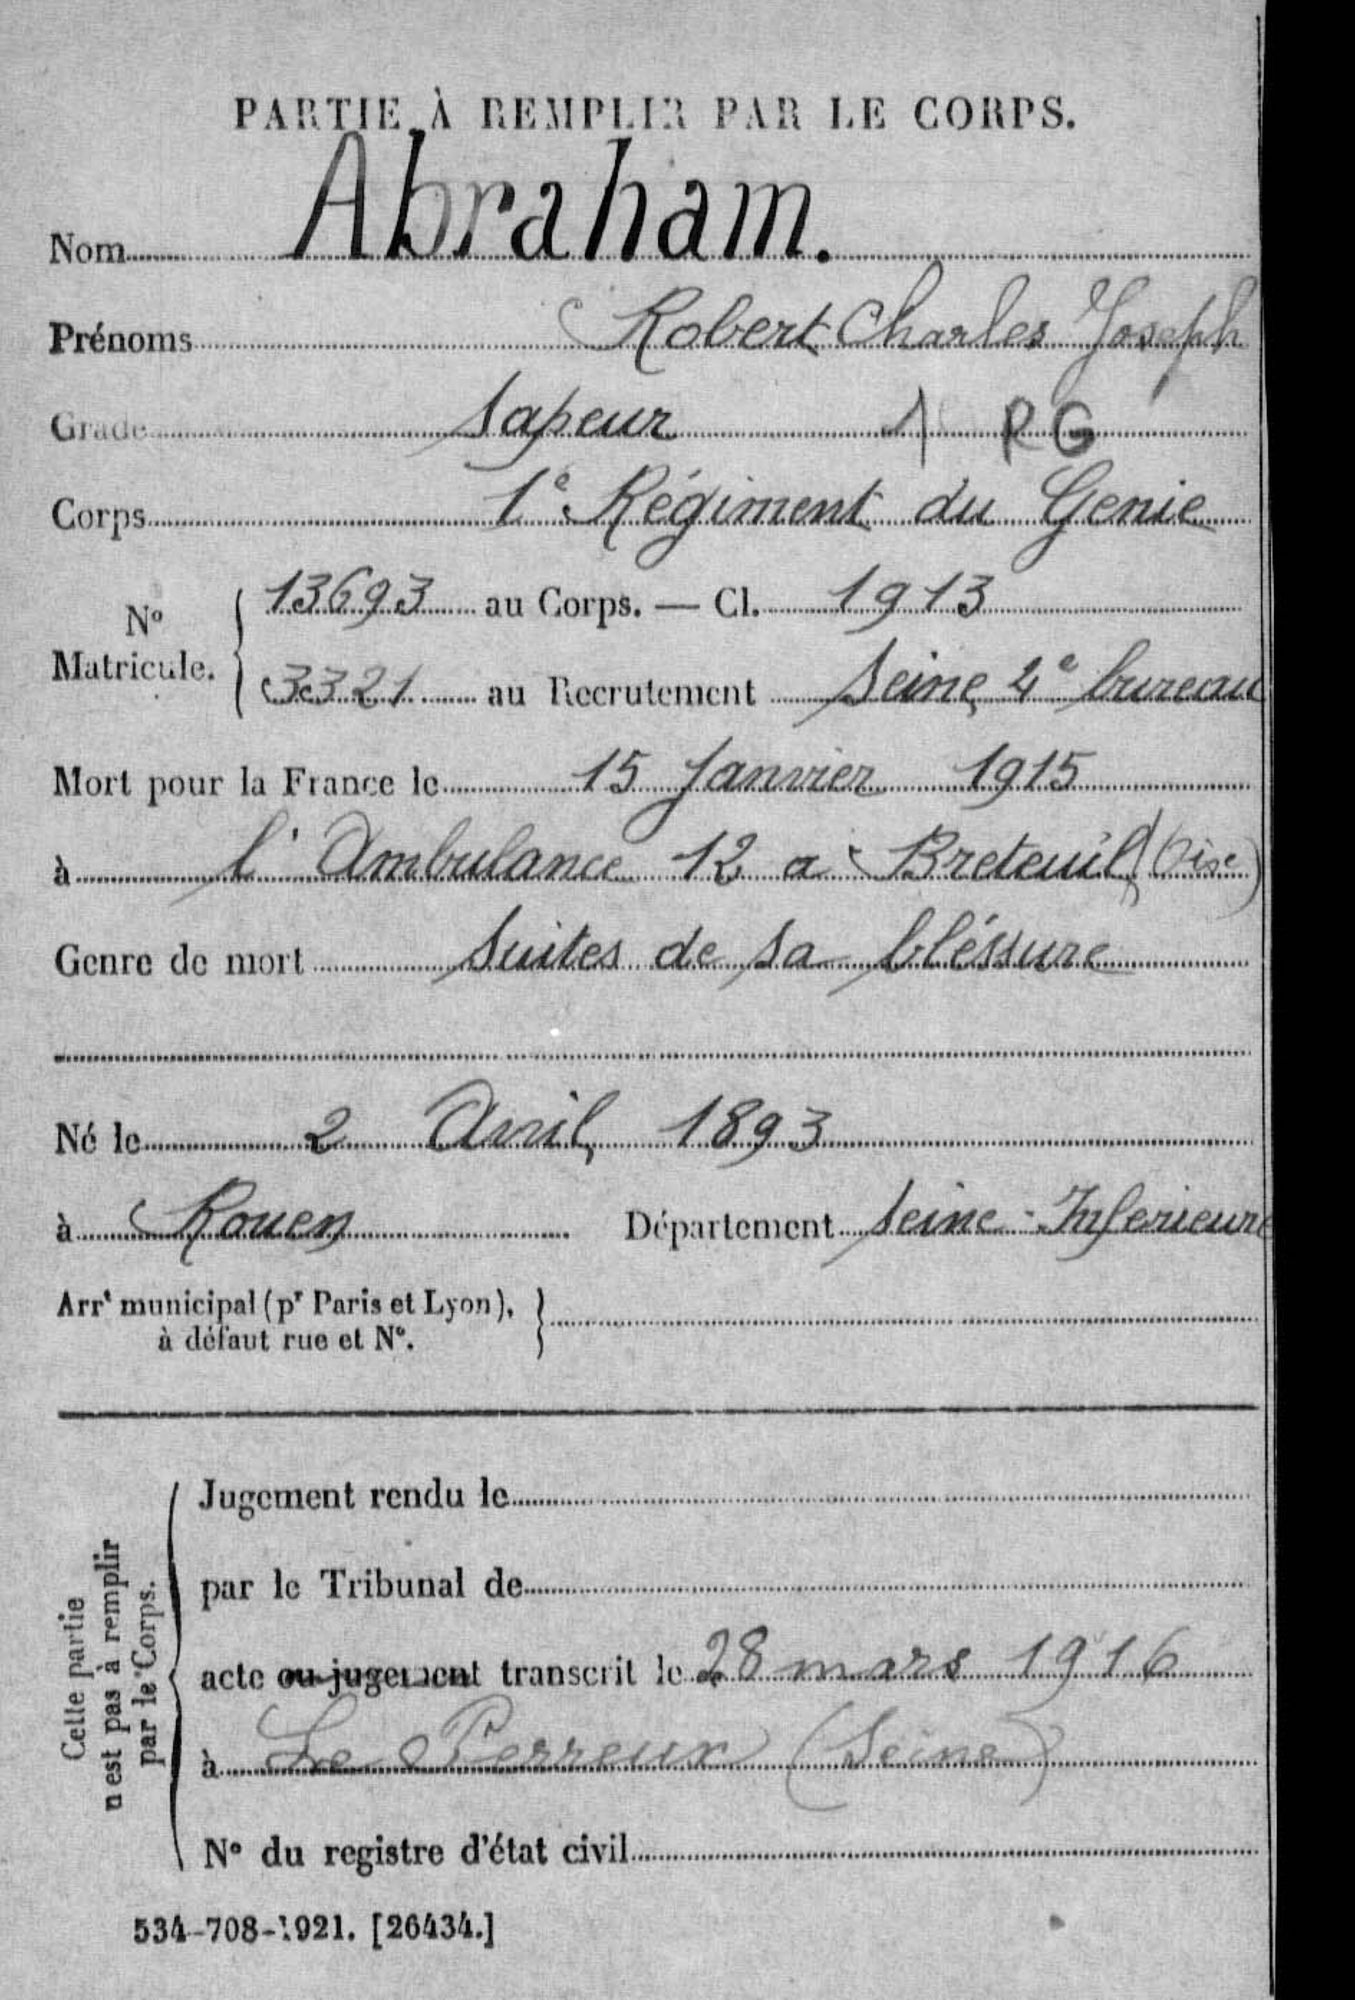 PARTIE À REMPLIR PAR LE CORPS.
Nom Abraham.
Prénoms Robert Charles Joseph
Grade Sapeur 1 RG
Corps 1e Régiment du Genie
No Matricule. { 13693 au Corps. — Cl. 1913
3321 au Recrutement Seine 4e bureau
Mort pour la France le 15 Janvier 1915
à l'Ambulance 12 a Breteuil (Oise)
Genre de mort Suites de sa bléssure
Né le 2 Avril 1893
à Rouen Département Seine-Inferieure
Arrt municipal (pr Paris et Lyon), }
à défaut rue et No.
Cette partie
n'est pas à remplir
par le Corps.
Jugement rendu le
par le Tribunal de
acte ou jugement transcrit le 28 mars 1916
à Le Perreux (Seine)
No du registre d'état civil
534-708-1921. [26434.]